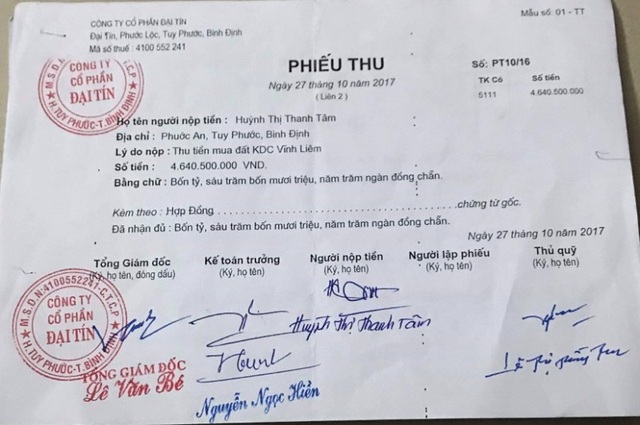 CÔNG TY CỔ PHẦN ĐẠI TÍN
Đại Tín, Phước Lộc, Tuy Phước, Bình Định
Mã số thuế : 4100 552 241
Mẫu số: 01 - TT
PHIẾU THU
Ngày 27 tháng 10 năm 2017
( Liên 2 )
Số: PT10/16
TK Có Số tiền
5111 4.640.500.000
M.S.D.N
C.T.C.P
CÔNG TY
CỔ PHẦN
ĐẠI TÍN
H.TUY PHƯỚC-T.BÌNH ĐỊNH
Họ tên người nộp tiền : Huỳnh Thị Thanh Tâm
Địa chỉ : Phước An, Tuy Phước, Bình Định
Lý do nộp : Thu tiền mua đất KDC Vĩnh Liêm
Số tiền : 4.640.500.000 VND.
Bằng chữ : Bốn tỷ, sáu trăm bốn mươi triệu, năm trăm ngàn đồng chẵn.
Kèm theo : Hợp Đồng ........................chứng từ gốc.
Đã nhận đủ : Bốn tỷ, sáu trăm bốn mươi triệu, năm trăm ngàn đồng chẵn.
Ngày 27 tháng 10 năm 2017
Tổng Giám đốc Kế toán trưởng Người nộp tiền Người lập phiếu Thủ quỹ
(Ký, họ tên, đóng dấu) (Ký, họ tên) (Ký, họ tên) (Ký, họ tên) (Ký, họ tên)
M.S.D.N:4100552241-C.T.C.P
CÔNG TY
CỔ PHẦN
ĐẠI TÍN
H.TUY PHƯỚC-T.BÌNH ĐỊNH
Huỳnh Thị Thanh Tâm
TỔNG GIÁM ĐỐC
Lê Văn Bé
Nguyễn Ngọc Hiền